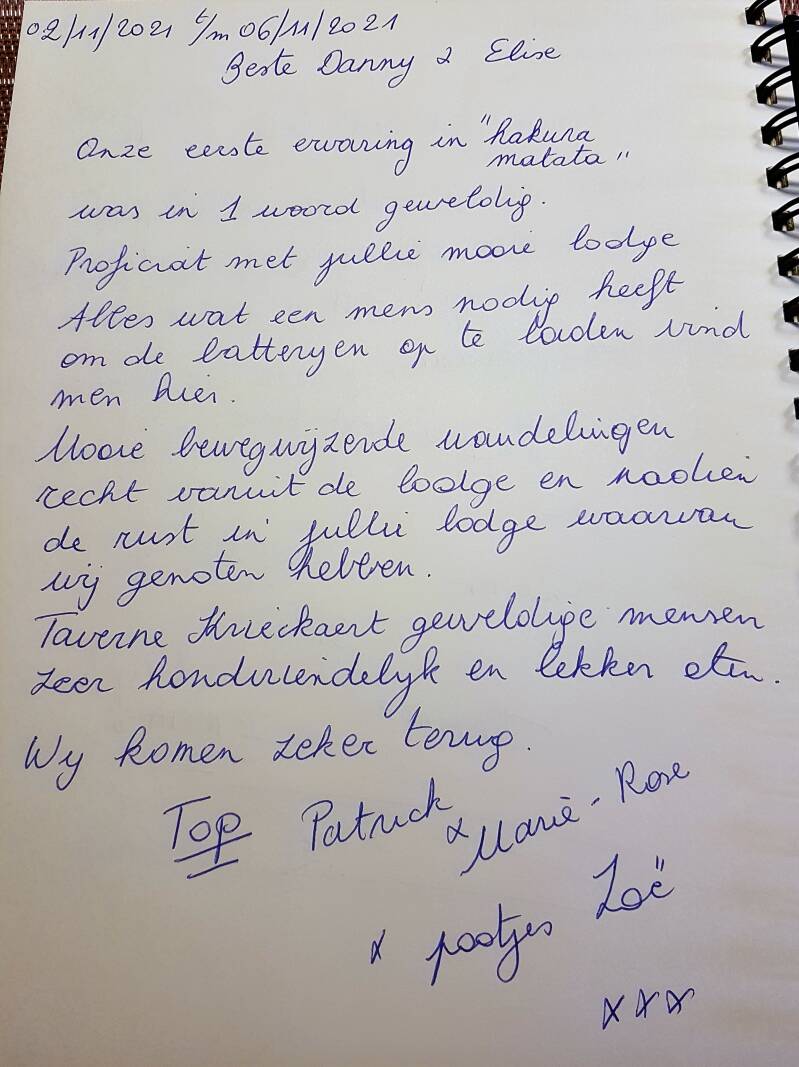 02/11/2021 t/m 06/11/2021
Beste Danny & Elise
Onze eerste ervaring in "hakuna
matata"
was in 1 woord geweldig.
Proficiat met jullie mooie lodge
Alles wat een mens nodig heeft
om de batteryen op te laden vind
men hier.
Mooie bewegwijzerde wandelingen
recht vanuit de lodge en nadien
de rust in jullie lodge waarvan
wij genoten hebben.
Taverne Krieckaert geweldige mensen
zeer hondvriendelyk en lekker eten.
Wy komen zeker terug.
Top Patrick
& Marie-Rose
& pootjes Zoë
xxx